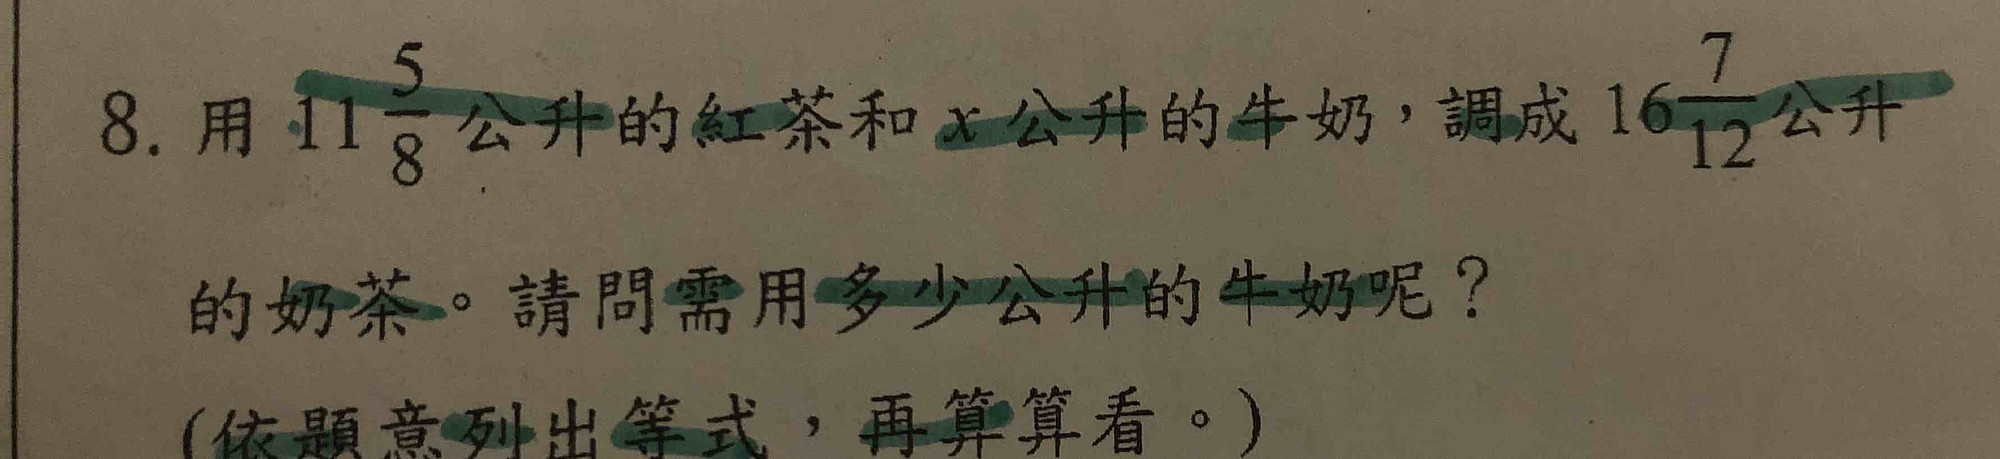 8. 用 11 5/8 公升的紅茶和 x 公升的牛奶，調成 16 7/12 公升
的奶茶。請問需用多少公升的牛奶呢？
(依題意列出等式，再算算看。)